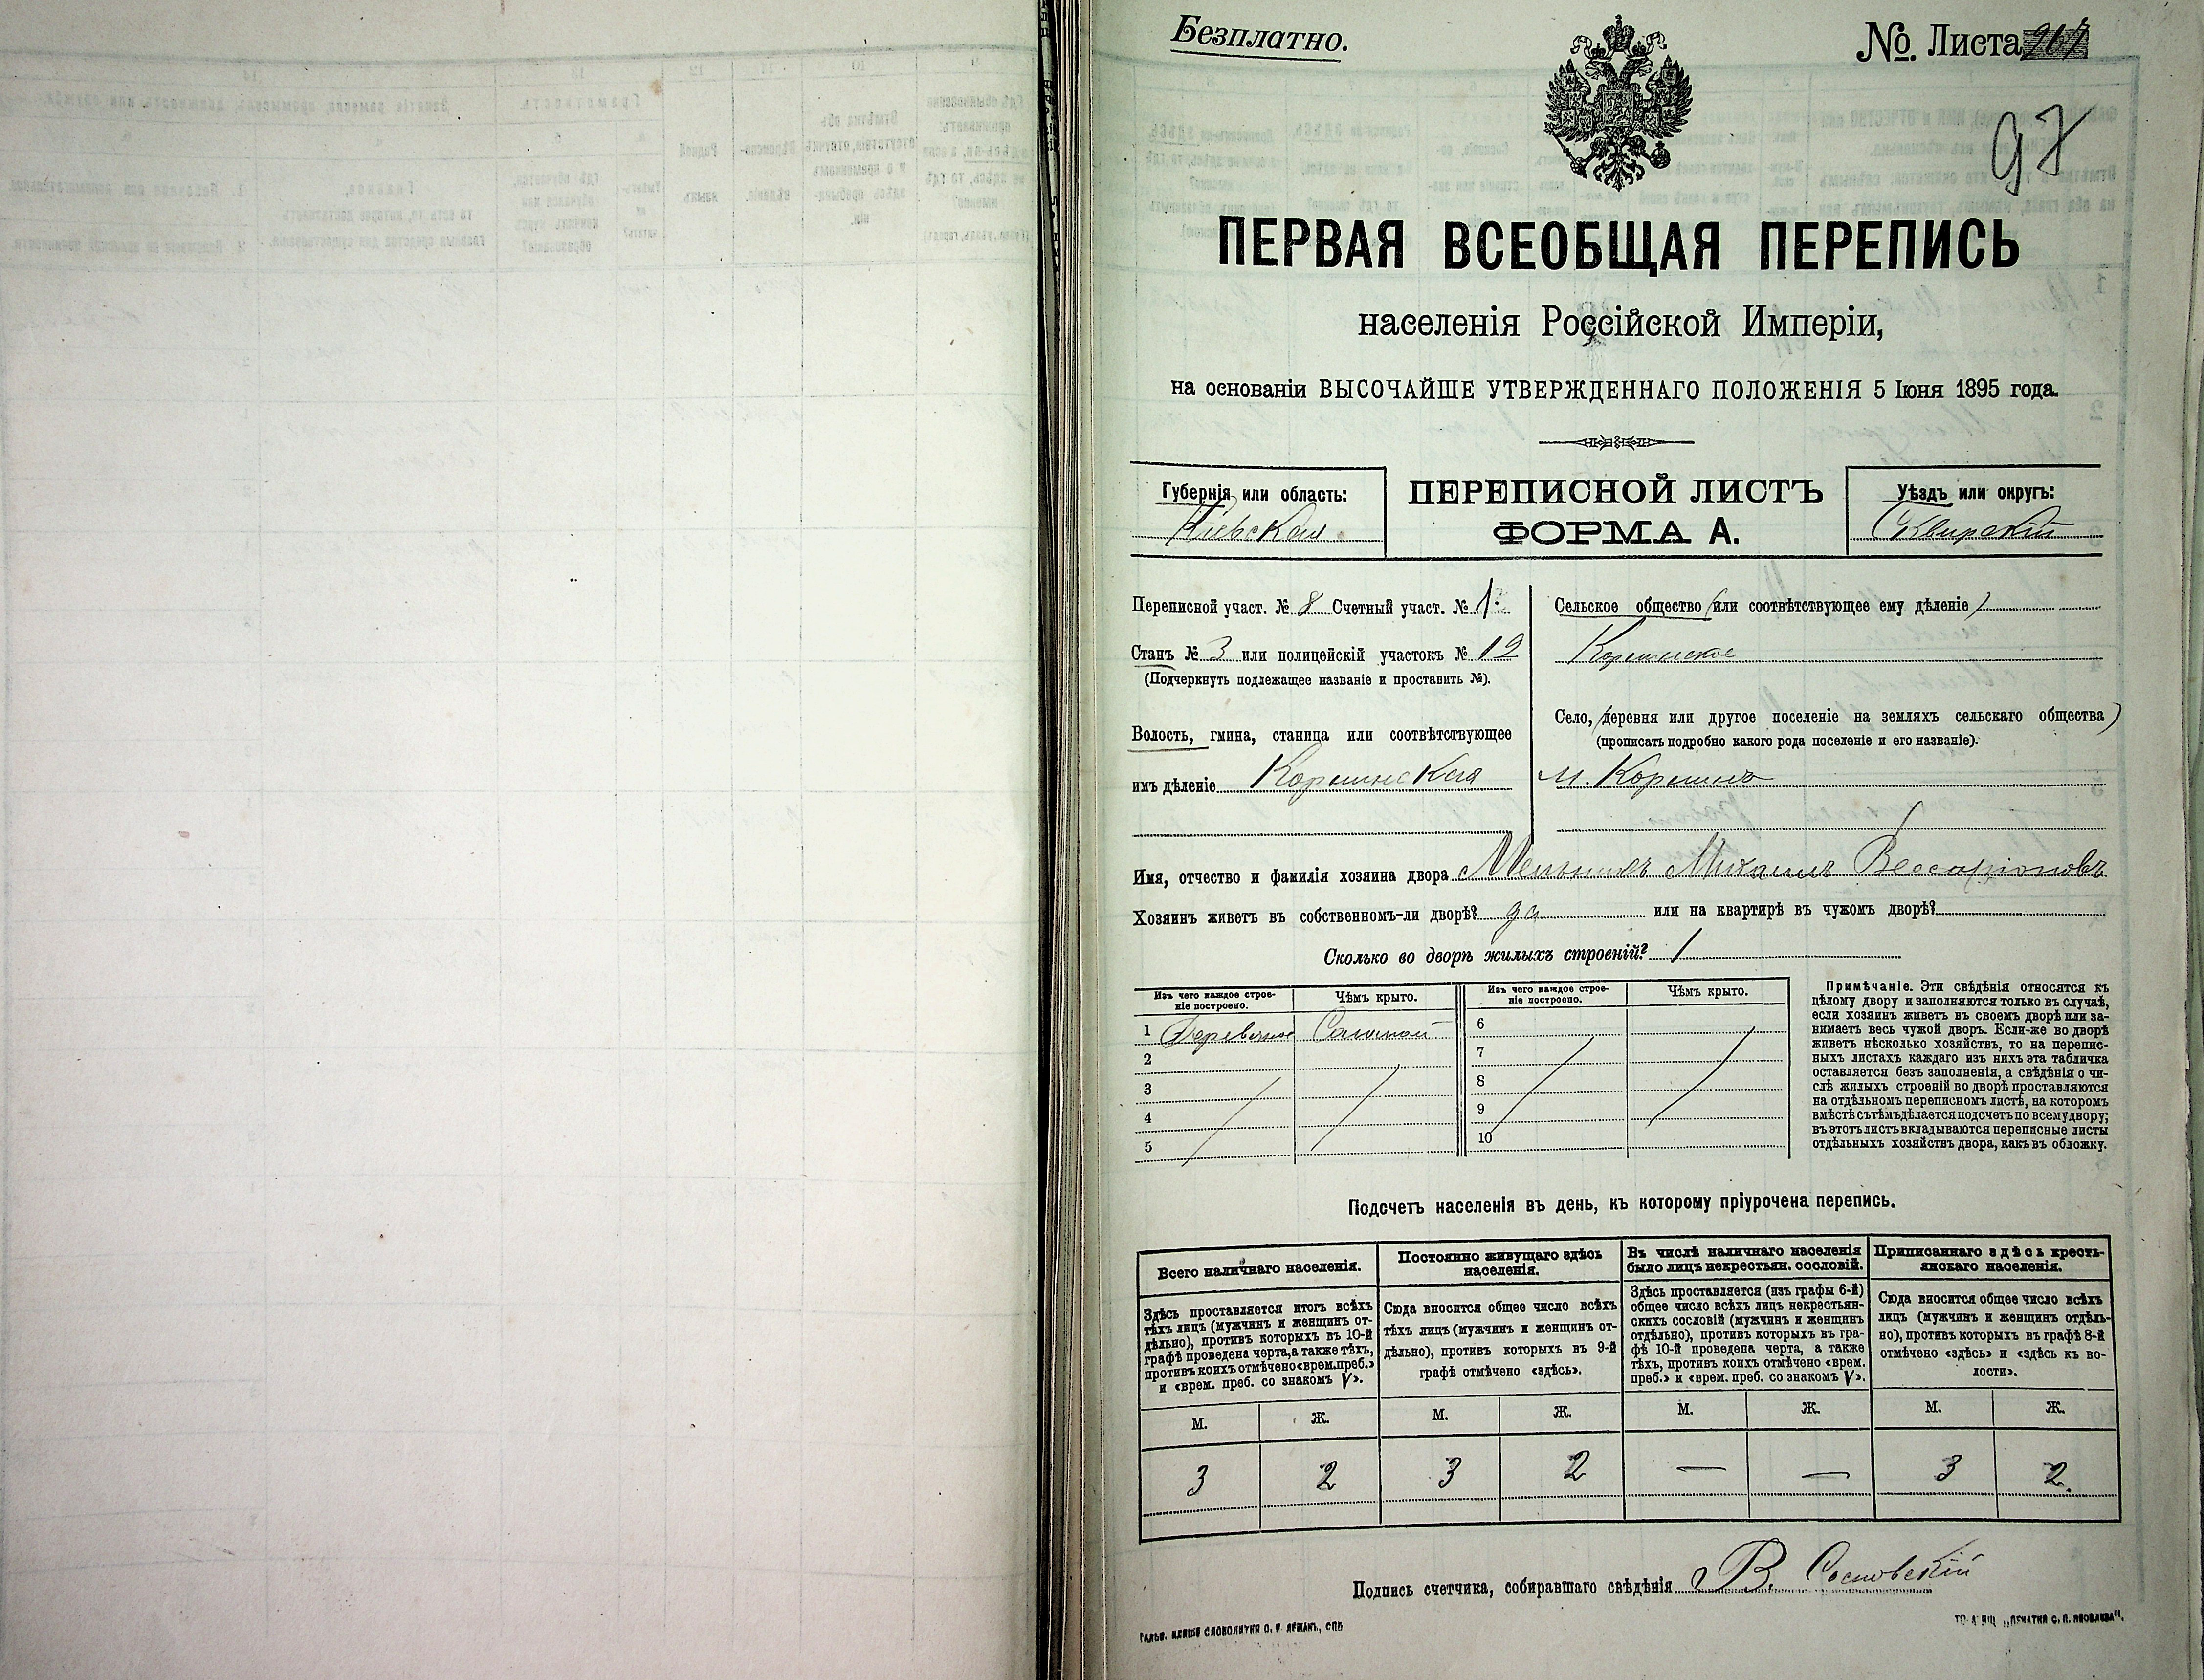 Безплатно.
№ Листа
97
ПЕРВАЯ ВСЕОБЩАЯ ПЕРЕПИСЬ
населенія Россійской Имперіи,
на основаніи ВЫСОЧАЙШЕ УТВЕРЖДЕННАГО ПОЛОЖЕНІЯ 5 Іюня 1895 года.
Губернія или область:
Кіевская
ПЕРЕПИСНОЙ ЛИСТЪ
ФОРМА А.
Уѣздъ или округъ:
Сквирскій
Переписной участ. № 8 Счетный участ. № 1
Станъ № 3 или полицейскій участокъ № 12
(Подчеркнуть подлежащее названіе и проставить №).
Волость, гмина, станица или соотвѣтствующее
имъ дѣленіе Корнинская
Сельское общество (или соотвѣтствующее ему дѣленіе)
Корнинское
Село, (деревня или другое поселеніе на земляхъ сельскаго общества)
(прописать подробно какого рода поселеніе и его названіе).
м. Корнинъ
Имя, отчество и фамилія хозяина двора Мельникъ Михаилъ Виссаріоновъ
Хозяинъ живетъ въ собственномъ-ли дворѣ? да или на квартирѣ въ чужомъ дворѣ?
Сколько во дворѣ жилыхъ строеній? 1
Изъ чего каждое строе-
ніе построено.
Чѣмъ крыто.
Изъ чего каждое строе-
ніе построено.
Чѣмъ крыто.
1 Деревянное Соломой
2
3
4
5
6
7
8
9
10
Примѣчаніе. Эти свѣдѣнія относятся къ
цѣлому двору и заполняются только въ случаѣ,
если хозяинъ живетъ въ своемъ дворѣ или за-
нимаетъ весь чужой дворъ. Если-же во дворѣ
живетъ нѣсколько хозяйствъ, то на перепис-
ныхъ листахъ каждаго изъ нихъ эта табличка
оставляется безъ заполненія, а свѣдѣнія о чи-
слѣ жилыхъ строеній во дворѣ проставляются
на отдѣльномъ переписномъ листѣ, на которомъ
вмѣстѣ съ тѣмъ дѣлается подсчетъ по всему двору;
въ этотъ листъ вкладываются переписные листы
отдѣльныхъ хозяйствъ двора, какъ въ обложку.
Подсчетъ населенія въ день, къ которому пріурочена перепись.
Всего наличнаго населенія.
Здѣсь проставляется итогъ всѣхъ
тѣхъ лицъ (мужчинъ и женщинъ от-
дѣльно), противъ которыхъ въ 10-й
графѣ проведена черта, а также тѣхъ,
противъ коихъ отмѣчено «врем. преб.»
и «врем. преб. со знакомъ V».
Постоянно живущаго здѣсь
населенія.
Сюда вносится общее число всѣхъ
тѣхъ лицъ (мужчинъ и женщинъ от-
дѣльно), противъ которыхъ въ 9-й
графѣ отмѣчено «здѣсь».
Въ числѣ наличнаго населенія
было лицъ некрестьян. сословій.
Здѣсь проставляется (изъ графы 6-й)
общее число всѣхъ лицъ некрестьян-
скихъ сословій (мужчинъ и женщинъ
отдѣльно), противъ которыхъ въ гра-
фѣ 10-й проведена черта, а также
тѣхъ, противъ коихъ отмѣчено «врем.
преб.» и «врем. преб. со знакомъ V».
Приписаннаго здѣсь кресть-
янскаго населенія.
Сюда вносится общее число всѣхъ
лицъ (мужчинъ и женщинъ отдѣль-
но), противъ которыхъ въ графѣ 8-й
отмѣчено «здѣсь» и «здѣсь къ во-
лости».
М. Ж. М. Ж. М. Ж. М. Ж.
3 2 3 2 — — 3 2
Подпись счетчика, собиравшаго свѣдѣнія В. Сосновскій